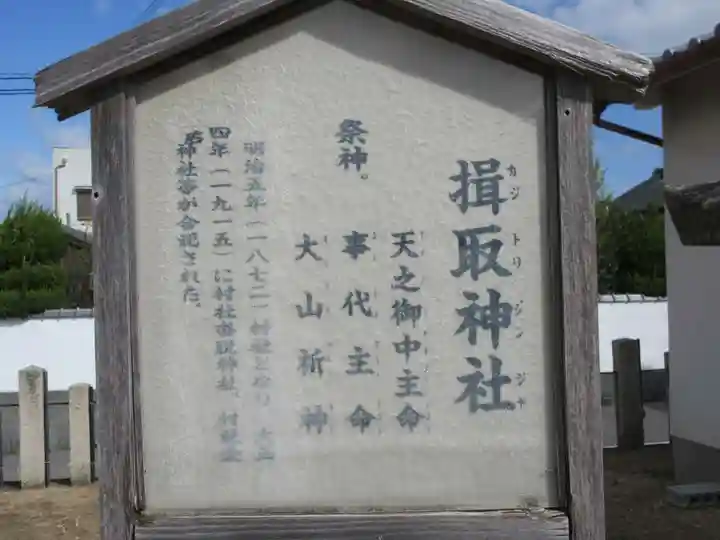 揖取神社
カジ トリ ジン ジャ
祭神。
天之御中主命
事代主命
大山祈神
明治五年(一八七二)村社となり、大正
四年(一九一五)に村社 神社、村社
神社等が合祀された。